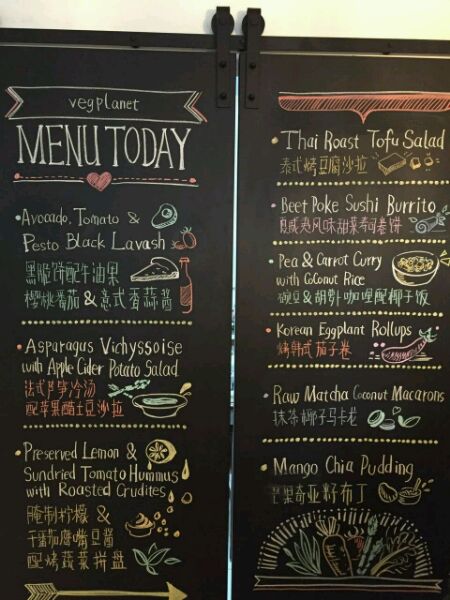 vegplanet
MENU TODAY
Avocado, Tomato &
Pesto Black Lavash
黑脆饼配牛油果
樱桃番茄 & 意式香蒜酱
Asparagus Vichyssoise
with Apple Cider Potato Salad
法式芦笋冷汤
配苹果醋土豆沙拉
Preserved Lemon &
Sundried Tomato Hummus
with Roasted Crudites
腌制柠檬 &
干番茄鹰嘴豆酱
配烤蔬菜拼盘
Thai Roast Tofu Salad
泰式烤豆腐沙拉
Beet Poke Sushi Burrito
夏威夷风味甜菜寿司卷饼
Pea & Carrot Curry
with Coconut Rice
豌豆 & 胡萝卜咖喱配椰子饭
Korean Eggplant Rollups
烤韩式茄子卷
Raw Matcha Coconut Macarons
抹茶椰子马卡龙
Mango Chia Pudding
芒果奇亚籽布丁